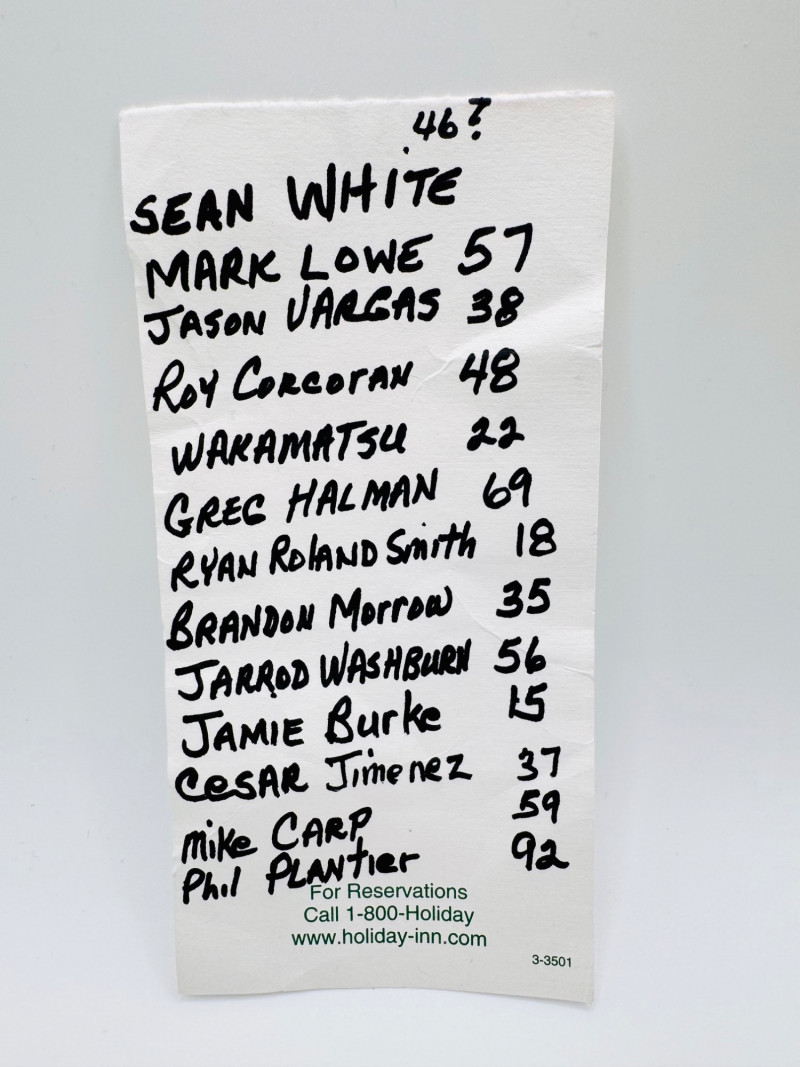 46?
SEAN WHITE
MARK LOWE 57
JASON VARGAS 38
ROY CORCORAN 48
WAKAMATSU 22
GREG HALMAN 69
RYAN ROLAND Smith 18
BRANDON MORROW 35
JARROD WASHBURN 56
JAMIE Burke 15
CeSAR Jimenez 37
mike CARP 59
Phil PLANTier 92
For Reservations
Call 1-800-Holiday
www.holiday-inn.com
3-3501